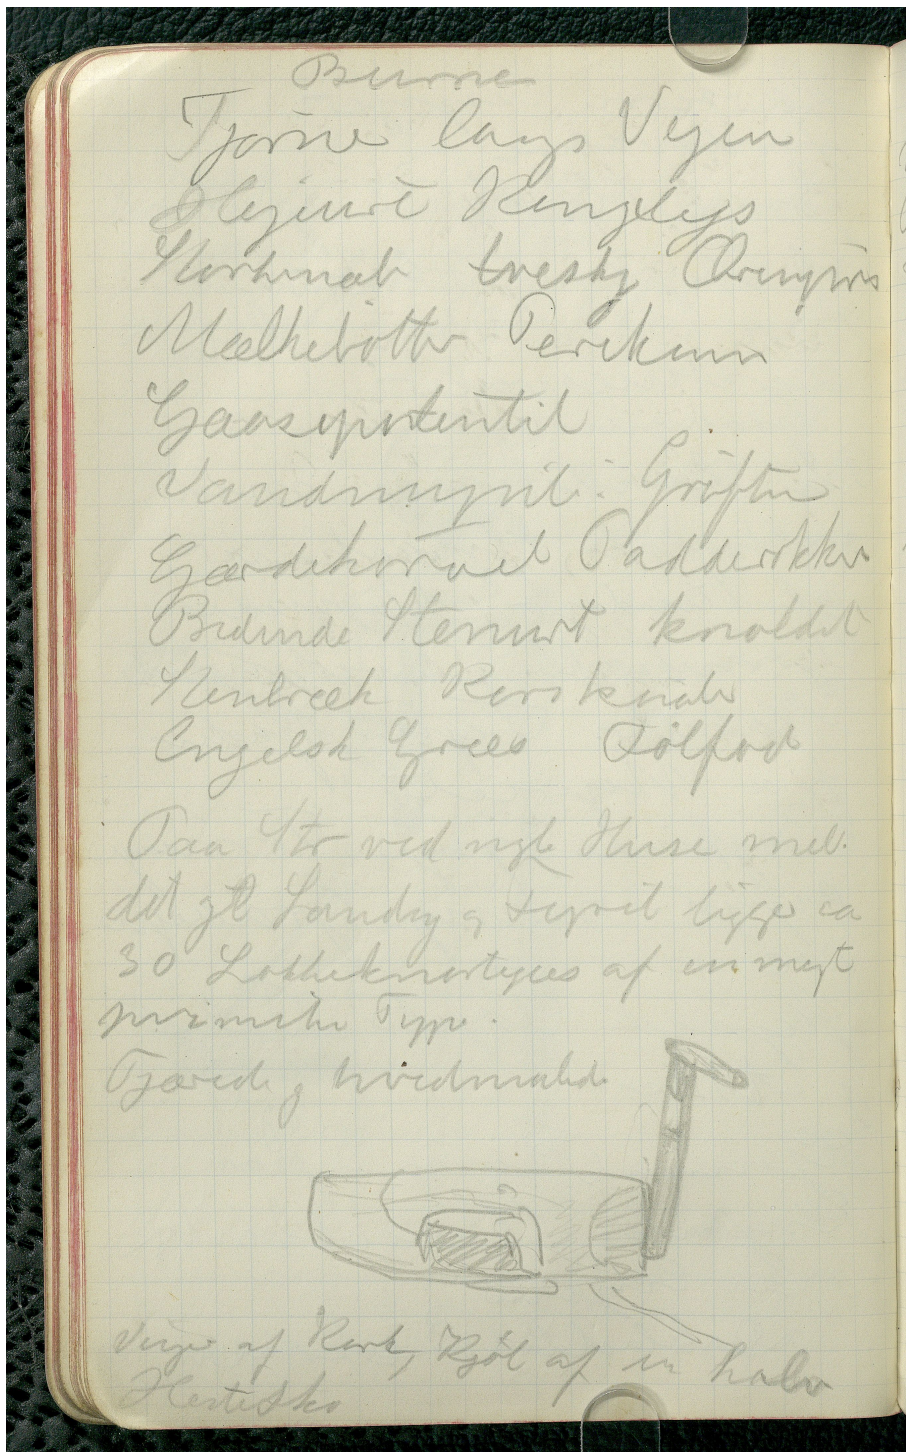 Burre
Tjørne langs Vejen
Højurt Kongelys
Storkenæb tvesky Ærenpris
Mælkebøtter Perikum
Gaasepotentil
Vandmynte i Grøften
Gærdekørvel Padderokker
Bidende Stenurt knoldet
Stenbræk Karskulé
Engelsk Græs Følfod
Paa Str ved nyb Huse mel.
det gl Landev og Fyret ligger ca
30 Lokke af en meget
primitiv Type.
Tjæred og hvidmalede
Vinger af Kork, Kjøl af en halv
Hestesko